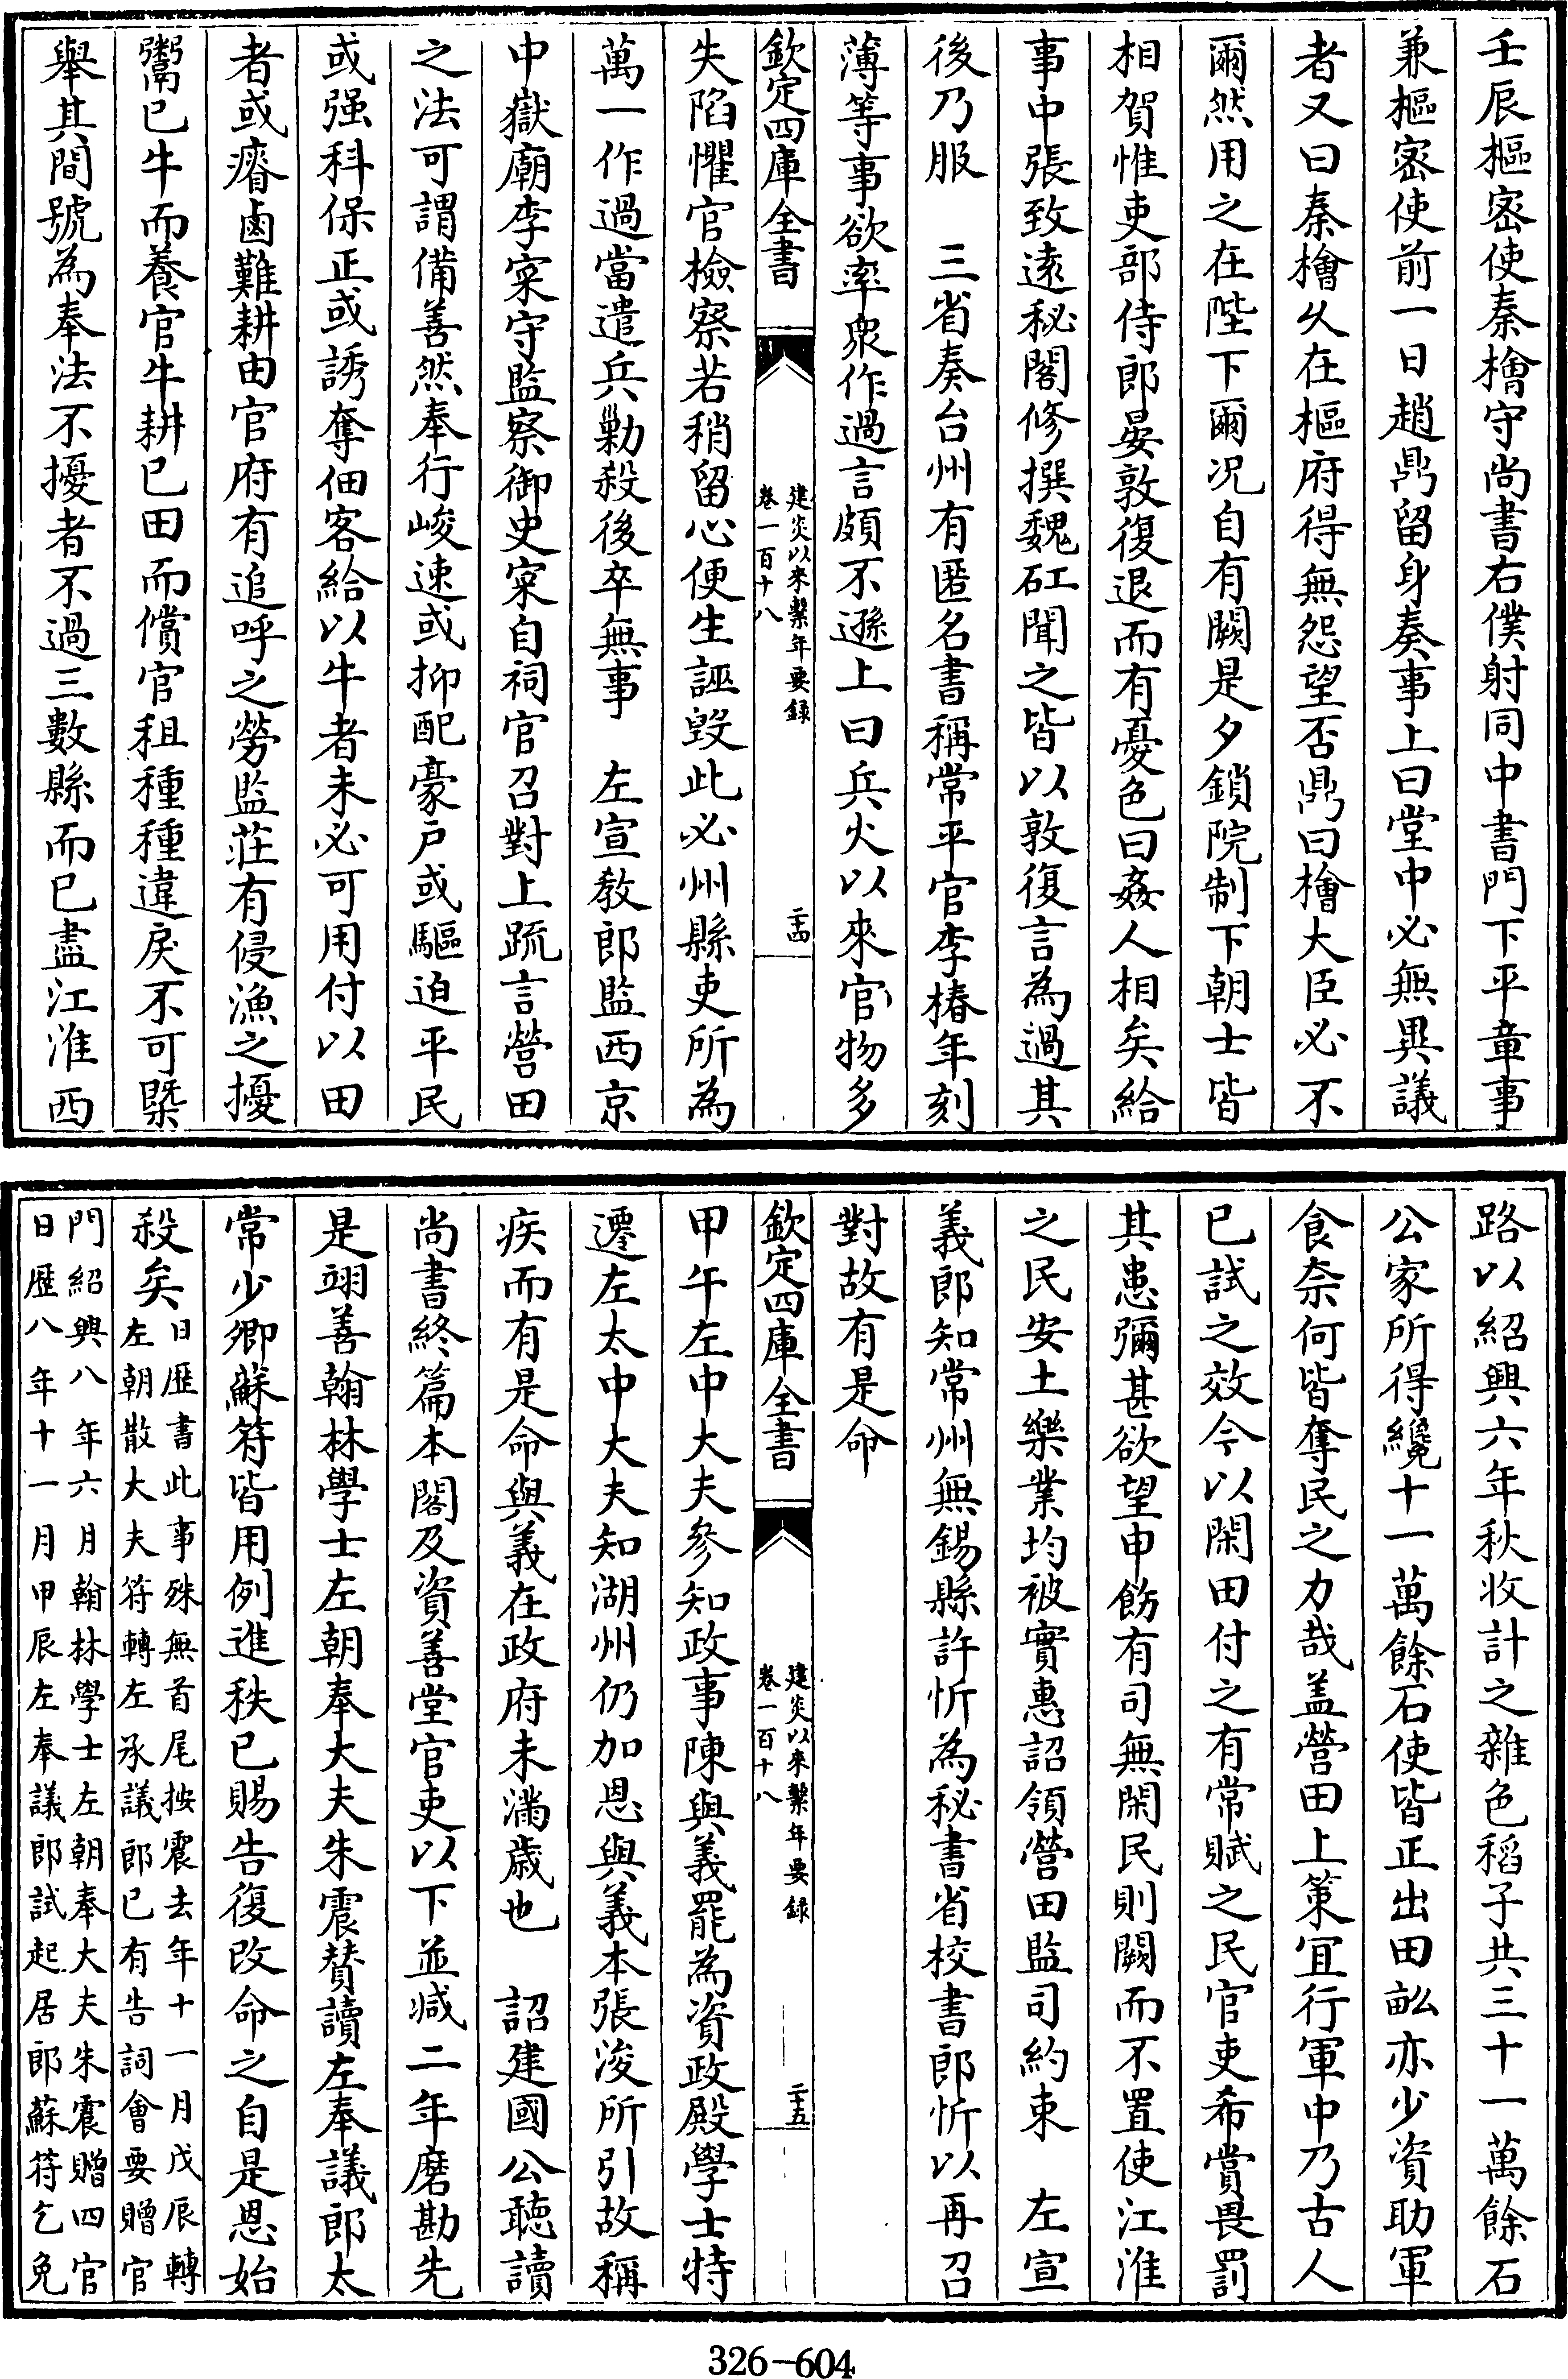 壬辰樞密使秦檜守尚書右僕射同中書門下平章事
兼樞密使前一日趙鼎留身奏事上曰堂中必無異議
者又曰秦檜久在樞府得無怨望否鼎曰檜大臣必不
爾然用之在陛下爾况自有闕是夕鎖院制下朝士皆
相賀惟吏部侍郎晏敦復退而有憂色曰姦人相矣給
事中張致逺秘閣修撰魏矼聞之皆以敦復言為過其
後乃服　三省奏台州有匿名書稱常平官李椿年刻
薄等事欲率衆作過言頗不遜上曰兵火以來官物多
欽定四庫全書
建炎以來繫年要録
卷一百十八
二十四
失陷懼官檢察若稍留心便生誣毀此必州縣吏所為
萬一作過當遣兵勦殺後卒無事　左宣教郎監西京
中嶽廟李寀守監察御史寀自祠官召對上疏言營田
之法可謂備善然奉行峻速或抑配豪户或驅迫平民
或强科保正或誘奪佃客給以牛者未必可用付以田
者或瘠鹵難耕由官府有追呼之勞監莊有侵漁之擾
鬻已牛而養官牛耕已田而償官租種種違戾不可槩
舉其間號為奉法不擾者不過三數縣而已盡江淮西
路以紹興六年秋收計之雜色稻子共三十一萬餘石
公家所得纔十一萬餘石使皆正出田畝亦少資助軍
食奈何皆奪民之力哉盖營田上策宜行軍中乃古人
已試之效今以閑田付之有常賦之民官吏希賞畏罰
其患彌甚欲望申飭有司無閑民則闕而不置使江淮
之民安土樂業均被實惠詔領營田監司約束　左宣
義郎知常州無錫縣許忻為秘書省校書郎忻以再召
對故有是命
欽定四庫全書
建炎以來繫年要録
卷一百十八
二十五
甲午左中大夫參知政事陳與義罷為資政殿學士特
遷左太中大夫知湖州仍加恩與義本張浚所引故稱
疾而有是命與義在政府未滿歳也　詔建國公聽讀
尚書終篇本閣及資善堂官吏以下並減二年磨勘先
是翊善翰林學士左朝奉大夫朱震贊讀左奉議郎太
常少卿蘇符皆用例進秩已賜告復改命之自是恩始
殺矣日歴書此事殊無首尾按震去年十一月戊辰轉
左朝散大夫符轉左承議郎已有告詞會要贈官
門紹興八年六月翰林學士左朝奉大夫朱震贈四官
日歴八年十一月甲辰左奉議郎試起居郎蘇符乞免
326-604